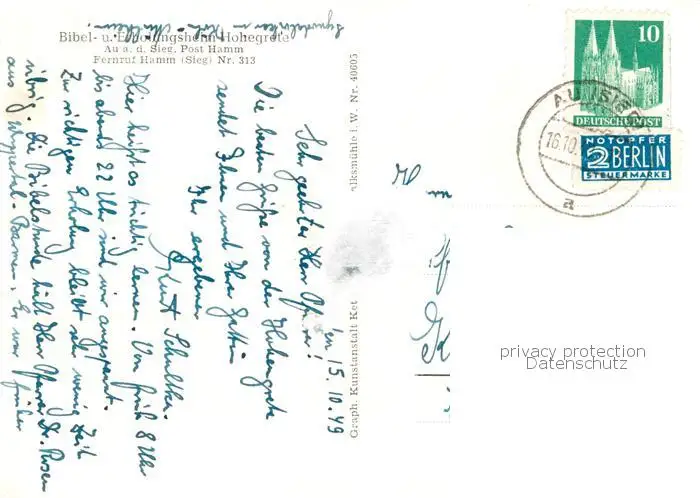 Bibel- u. Erholungsheim Hohegrete
Au a. d. Sieg. Post Hamm
Fernruf Hamm (Sieg) Nr. 313
den 15.10.49
Sehr geehrter Herr Pfarrer!
Die besten Grüße von der Hohengrete
sendet Ihnen und Ihrer Gattin
Ihr ergebener
Kurt
Hier heißt es tüchtig lernen. Von früh 8 Uhr
bis abends 22 Uhr sind wir angespannt.
Zur richtigen Erholung bleibt sehr wenig Zeit
übrig. Die Bibelstunde hält Herr Pfarrer Dr.
aus Wuppertal-Barmen. Er war früher
in
Graph. Kunstanstalt Ket
alksmühle i. W. Nr. 40605
10
DEUTSCHE POST
NOTOPFER
2 BERLIN
STEUERMARKE
AU (SIEG)
16.10.
a
privacy protection
Datenschutz